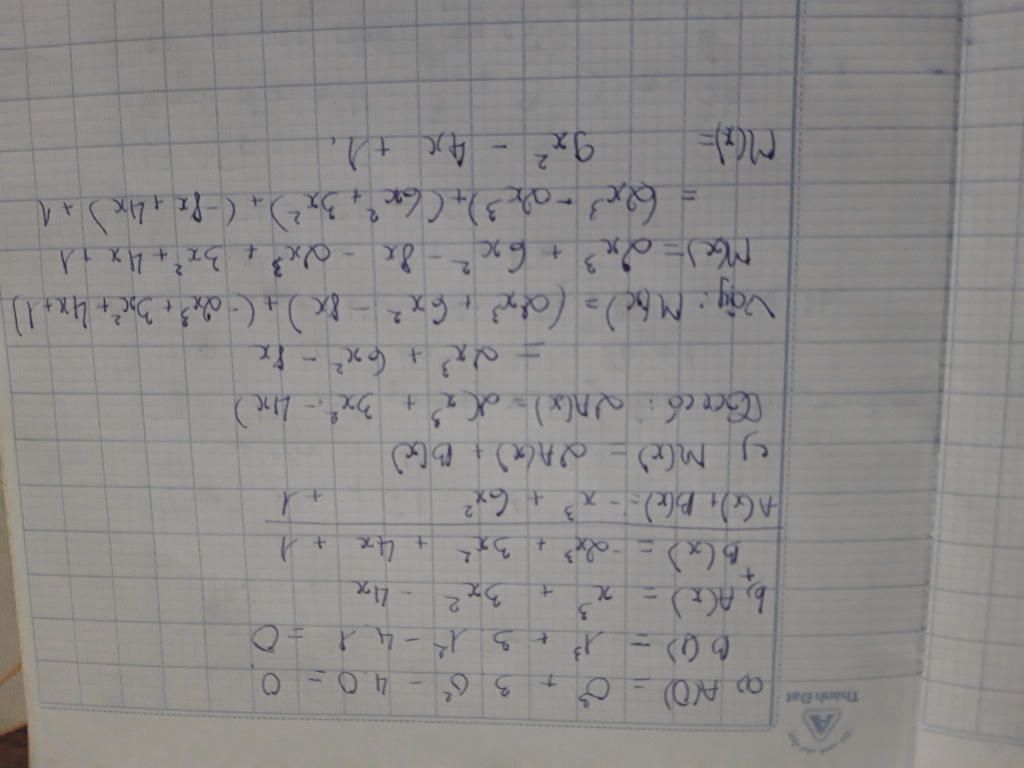 Thành Đạt
a, A(0) = 0³ + 3 0² - 4 0 = 0
B(1) = 1³ + 3 1² - 4 1 = 0
b, A(x) = x³ + 3x² - 4x
+
B(x) = -2x³ + 3x² + 4x + 1
A(x) + B(x) = - x³ + 6x² + 1
c, M(x) = 2A(x) + B(x)
có : 2A(x) = 2(x³ + 3x² - 4x)
= 2x³ + 6x² - 8x
Vậy : M(x) = (2x³ + 6x² - 8x) + (-2x³ + 3x² + 4x + 1)
M(x) = 2x³ + 6x² - 8x - 2x³ + 3x² + 4x + 1
= (2x³ - 2x³) + (6x² + 3x²) + (-8x + 4x) + 1
M(x) = 9x² - 4x + 1.